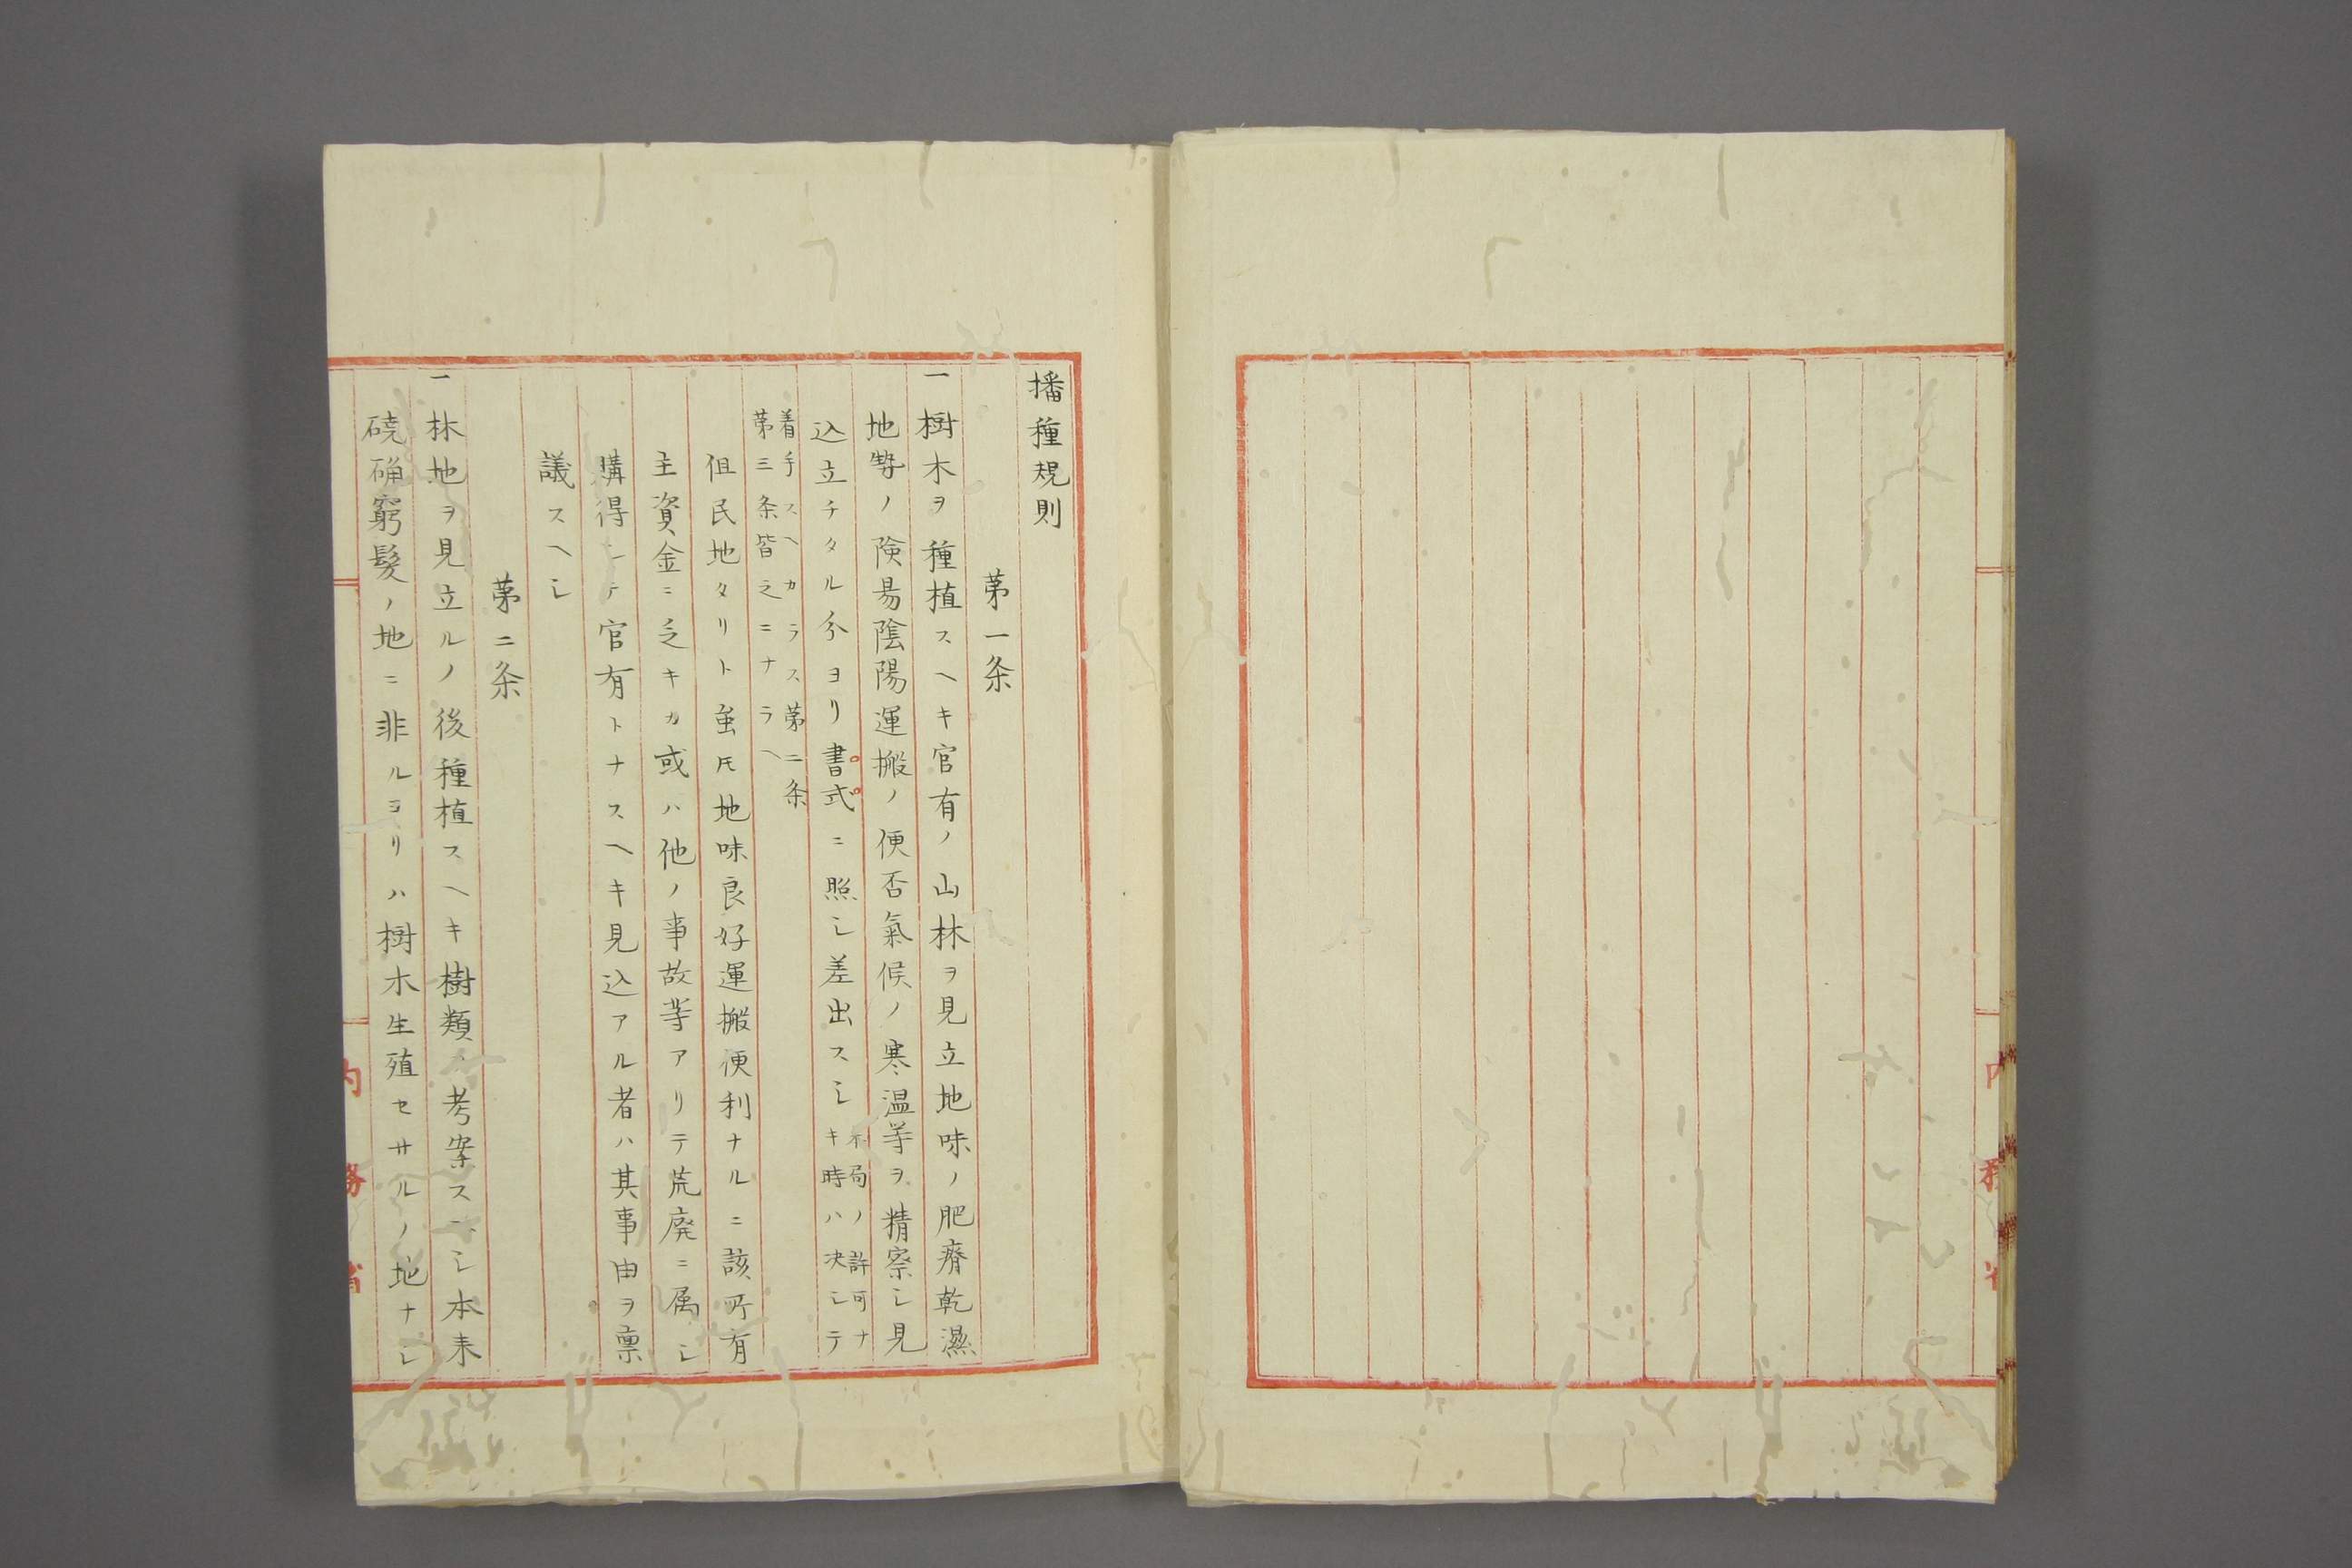 播種規則
第一条
一樹木ヲ種植スヘキ官有ノ山林ヲ見立地味ノ肥瘠乾濕
地勢ノ険易陰陽運搬ノ便否氣候ノ寒温等ヲ精察シ見
込立チタル分ヨリ書式ニ照シ差出スヘシ
本局ノ許可ナ
キ時ハ决シテ
着手スヘカラス第二条
第三条皆之ニナラヘ
但民地タリト虽㐧地味良好運搬便利ナルニ該所有
主資金ニ乏キカ或ハ他ノ事故等アリテ荒廃ニ属シ
購得シテ官有トナスヘキ見込アル者ハ其事由ヲ稟
議スヘシ
第二条
一林地ヲ見立ルノ後種植スヘキ樹類ヲ考案スヘシ本来
磽确窮髮ノ地ニ非ルヨリハ樹木生殖セサルノ地ナシ
内務省
内務省